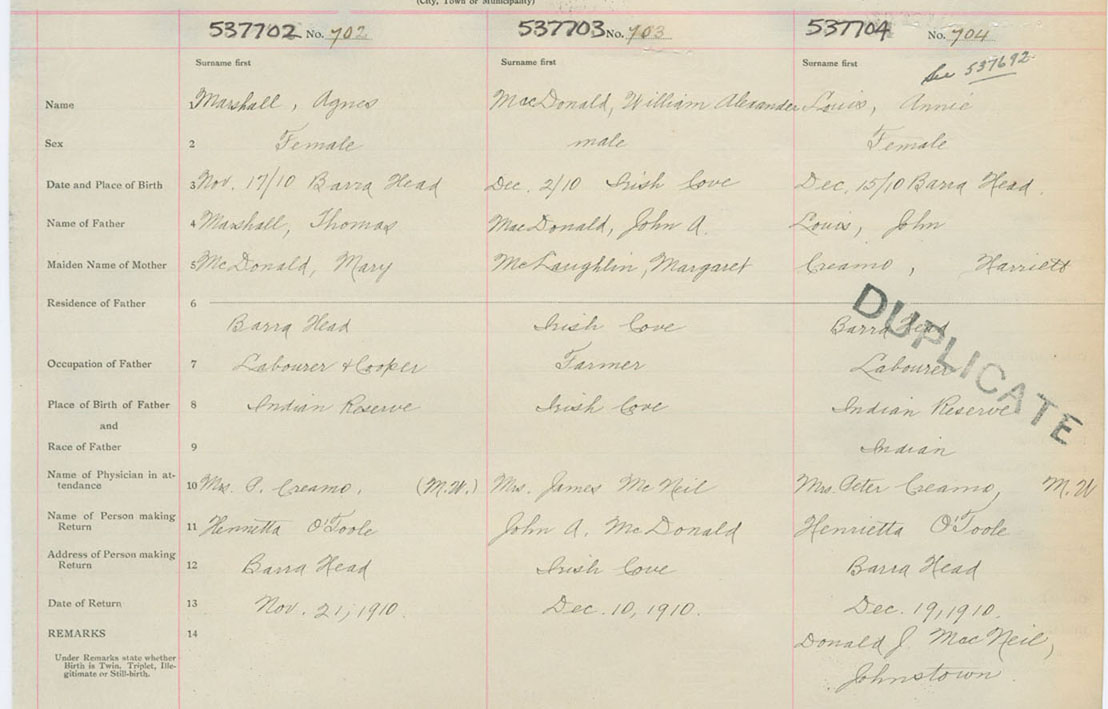 (City, Town or Municipality)
537702 No. 702 537703 No. 703 537704 No. 704
Surname first Surname first Surname first See 537692
Name Marshall, Agnes MacDonald, William Alexander Louis, Annie
Sex 2 Female male Female
Date and Place of Birth 3 Nov. 17/10 Barra Head Dec. 2/10 Irish Cove Dec. 15/10 Barra Head.
Name of Father 4 Marshall, Thomas MacDonald, John A. Louis, John
Maiden Name of Mother 5 McDonald, Mary McLaughlin, Margaret Creamo, Harriett
Residence of Father 6
Barra Head Irish Cove Barra Head
DUPLICATE
Occupation of Father 7 Labourer & Cooper Farmer Labourer
Place of Birth of Father 8 Indian Reserve Irish Cove Indian Reserve
and
Race of Father 9 Indian
Name of Physician in at-
tendance 10 Mrs. P. Creamo. (M.W.) Mrs. James McNeil Mrs. Peter Creamo, M.W
Name of Person making
Return 11 Henrietta O'Toole John A. McDonald Henrietta O'Toole
Address of Person making
Return 12 Barra Head Irish Cove Barra Head
Date of Return 13 Nov. 21, 1910. Dec. 10, 1910. Dec. 19, 1910.
REMARKS 14 Donald J MacNeil,
Under Remarks state whether
Birth is Twin, Triplet, Ille-
gitimate or Still-birth.
Johnstown